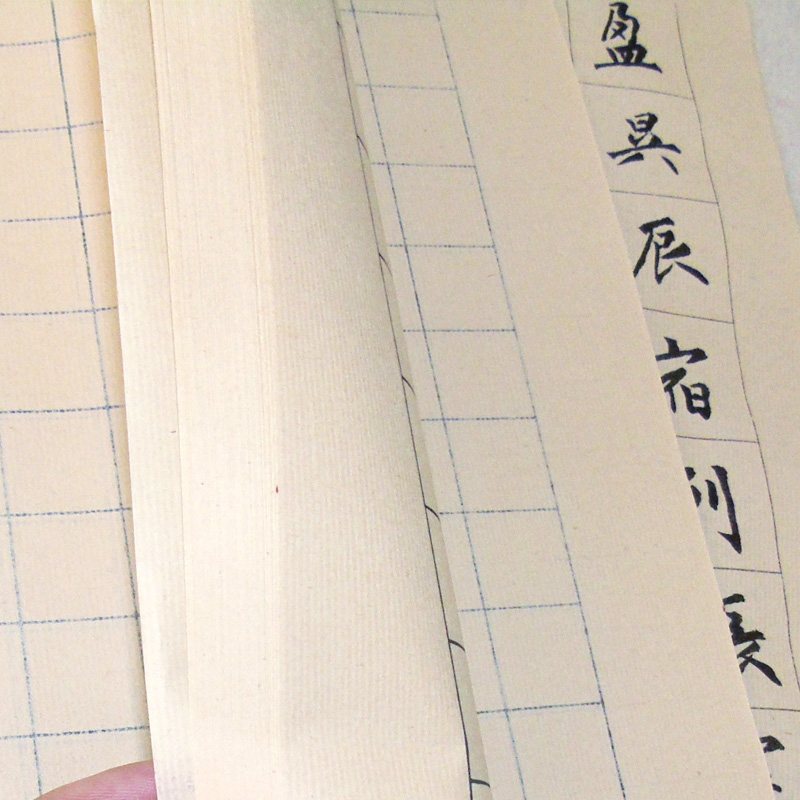 盈昃辰宿列張